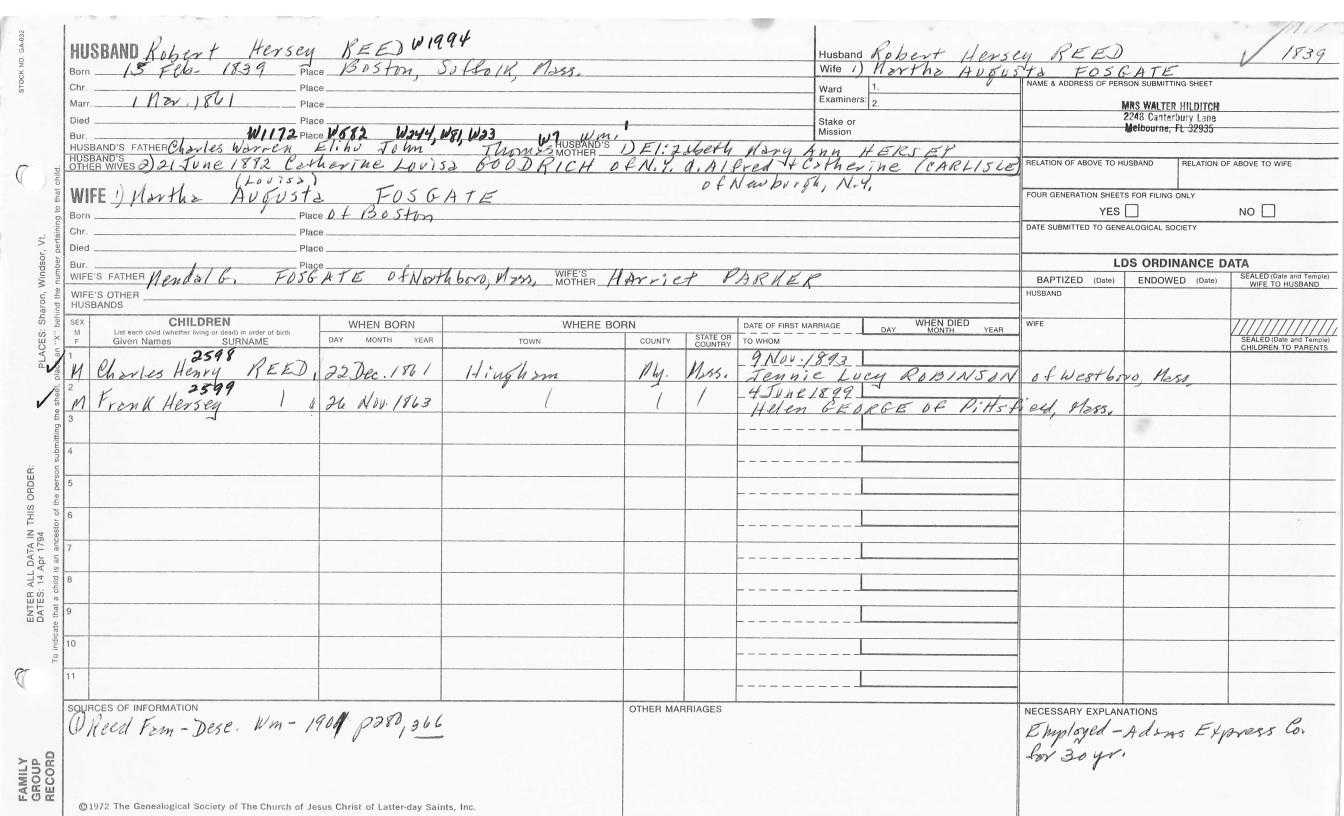 STOCK NO. GA-032
HUSBAND Robert Hersey REED W1994
Born 15 Feb. 1839 Place Boston, Suffolk, Mass.
Chr. Place
Marr. 1 Mar. 1861 Place
Died Place
Bur. Place
W1172 W582 W244, W81, W23 W7 Wm. 1
HUSBAND'S FATHER Charles Warren Elihu John Thomas HUSBAND'S MOTHER 1) Elizabeth Mary Ann HERSEY
HUSBAND'S OTHER WIVES 2) 21 June 1882 Catherine Lovisa GOODRICH of N.Y. d. Alfred + Catherine (CARLISLE)
of Newburgh, N.Y.
(Lovisa)
WIFE 1) Martha Augusta FOSGATE
Born Place of Boston
Chr. Place
Died Place
Bur. Place
WIFE'S FATHER Mendal G. FOSGATE of Northboro, Mass. WIFE'S MOTHER Harriet PARKER
WIFE'S OTHER HUSBANDS
Husband Robert Hersey REED 1839
Wife 1) Martha Augusta FOSGATE
Ward Examiners: 1. 2.
Stake or Mission
NAME & ADDRESS OF PERSON SUBMITTING SHEET
MRS WALTER HILDITCH
2248 Canterbury Lane
Melbourne, FL 32935
RELATION OF ABOVE TO HUSBAND RELATION OF ABOVE TO WIFE
FOUR GENERATION SHEETS FOR FILING ONLY
YES NO
DATE SUBMITTED TO GENEALOGICAL SOCIETY
LDS ORDINANCE DATA
BAPTIZED (Date) ENDOWED (Date) SEALED (Date and Temple) WIFE TO HUSBAND
HUSBAND
WIFE
SEALED (Date and Temple) CHILDREN TO PARENTS
SEX M F
CHILDREN
List each child (whether living or dead) in order of birth
Given Names SURNAME
WHEN BORN
DAY MONTH YEAR
WHERE BORN
TOWN COUNTY STATE OR COUNTRY
DATE OF FIRST MARRIAGE
TO WHOM
WHEN DIED
DAY MONTH YEAR
2598 9 Nov. 1893
1 M Charles Henry REED 22 Dec. 1861 Hingham Ply. Mass. Jennie Lucy ROBINSON of Westboro, Mass.
2599 4 June 1899
2 M Frank Hersey 26 Nov. 1863 Helen GEORGE of Pittsfield, Mass.
3
4
5
6
7
8
9
10
11
SOURCES OF INFORMATION
① Reed Fam-Desc. Wm - 1901 p280, 366
OTHER MARRIAGES
NECESSARY EXPLANATIONS
Employed - Adams Express Co.
for 30 yr.
©1972 The Genealogical Society of The Church of Jesus Christ of Latter-day Saints, Inc.
FAMILY GROUP RECORD
ENTER ALL DATA IN THIS ORDER:
DATES: 14 Apr 1794
PLACES: Sharon, Windsor, Vt.
To indicate that a child is an ancestor of the person submitting the sheet, place an "X" behind the number pertaining to that child.